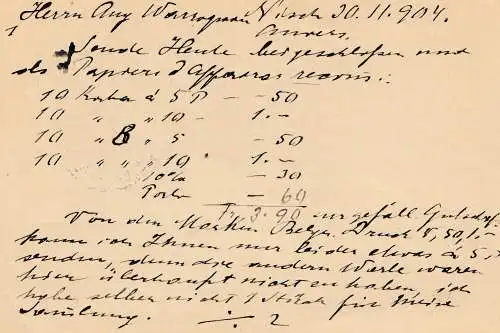 Herrn Aug Nisch 30.11.904.
Anvers.
Sende Heute beigeschloßen und
als Papiers d'affaires recom.:
10 Karten á 5 P — -50
10 " " 10 - 1.-
10 " 8 " 5 - 50
10 " " 10 1.-
10% - 30
Porto — 60
Fr. 3.90 gefäll. Gutschrf.
Von den Marken Belg. Druck
kann ich Ihnen nur leider etwas á 5,
senden, denn die andern Werte waren
hier überhaupt nicht zu haben, ich
habe selber nicht 1 Stück für meine
Samlung. ÷ 2